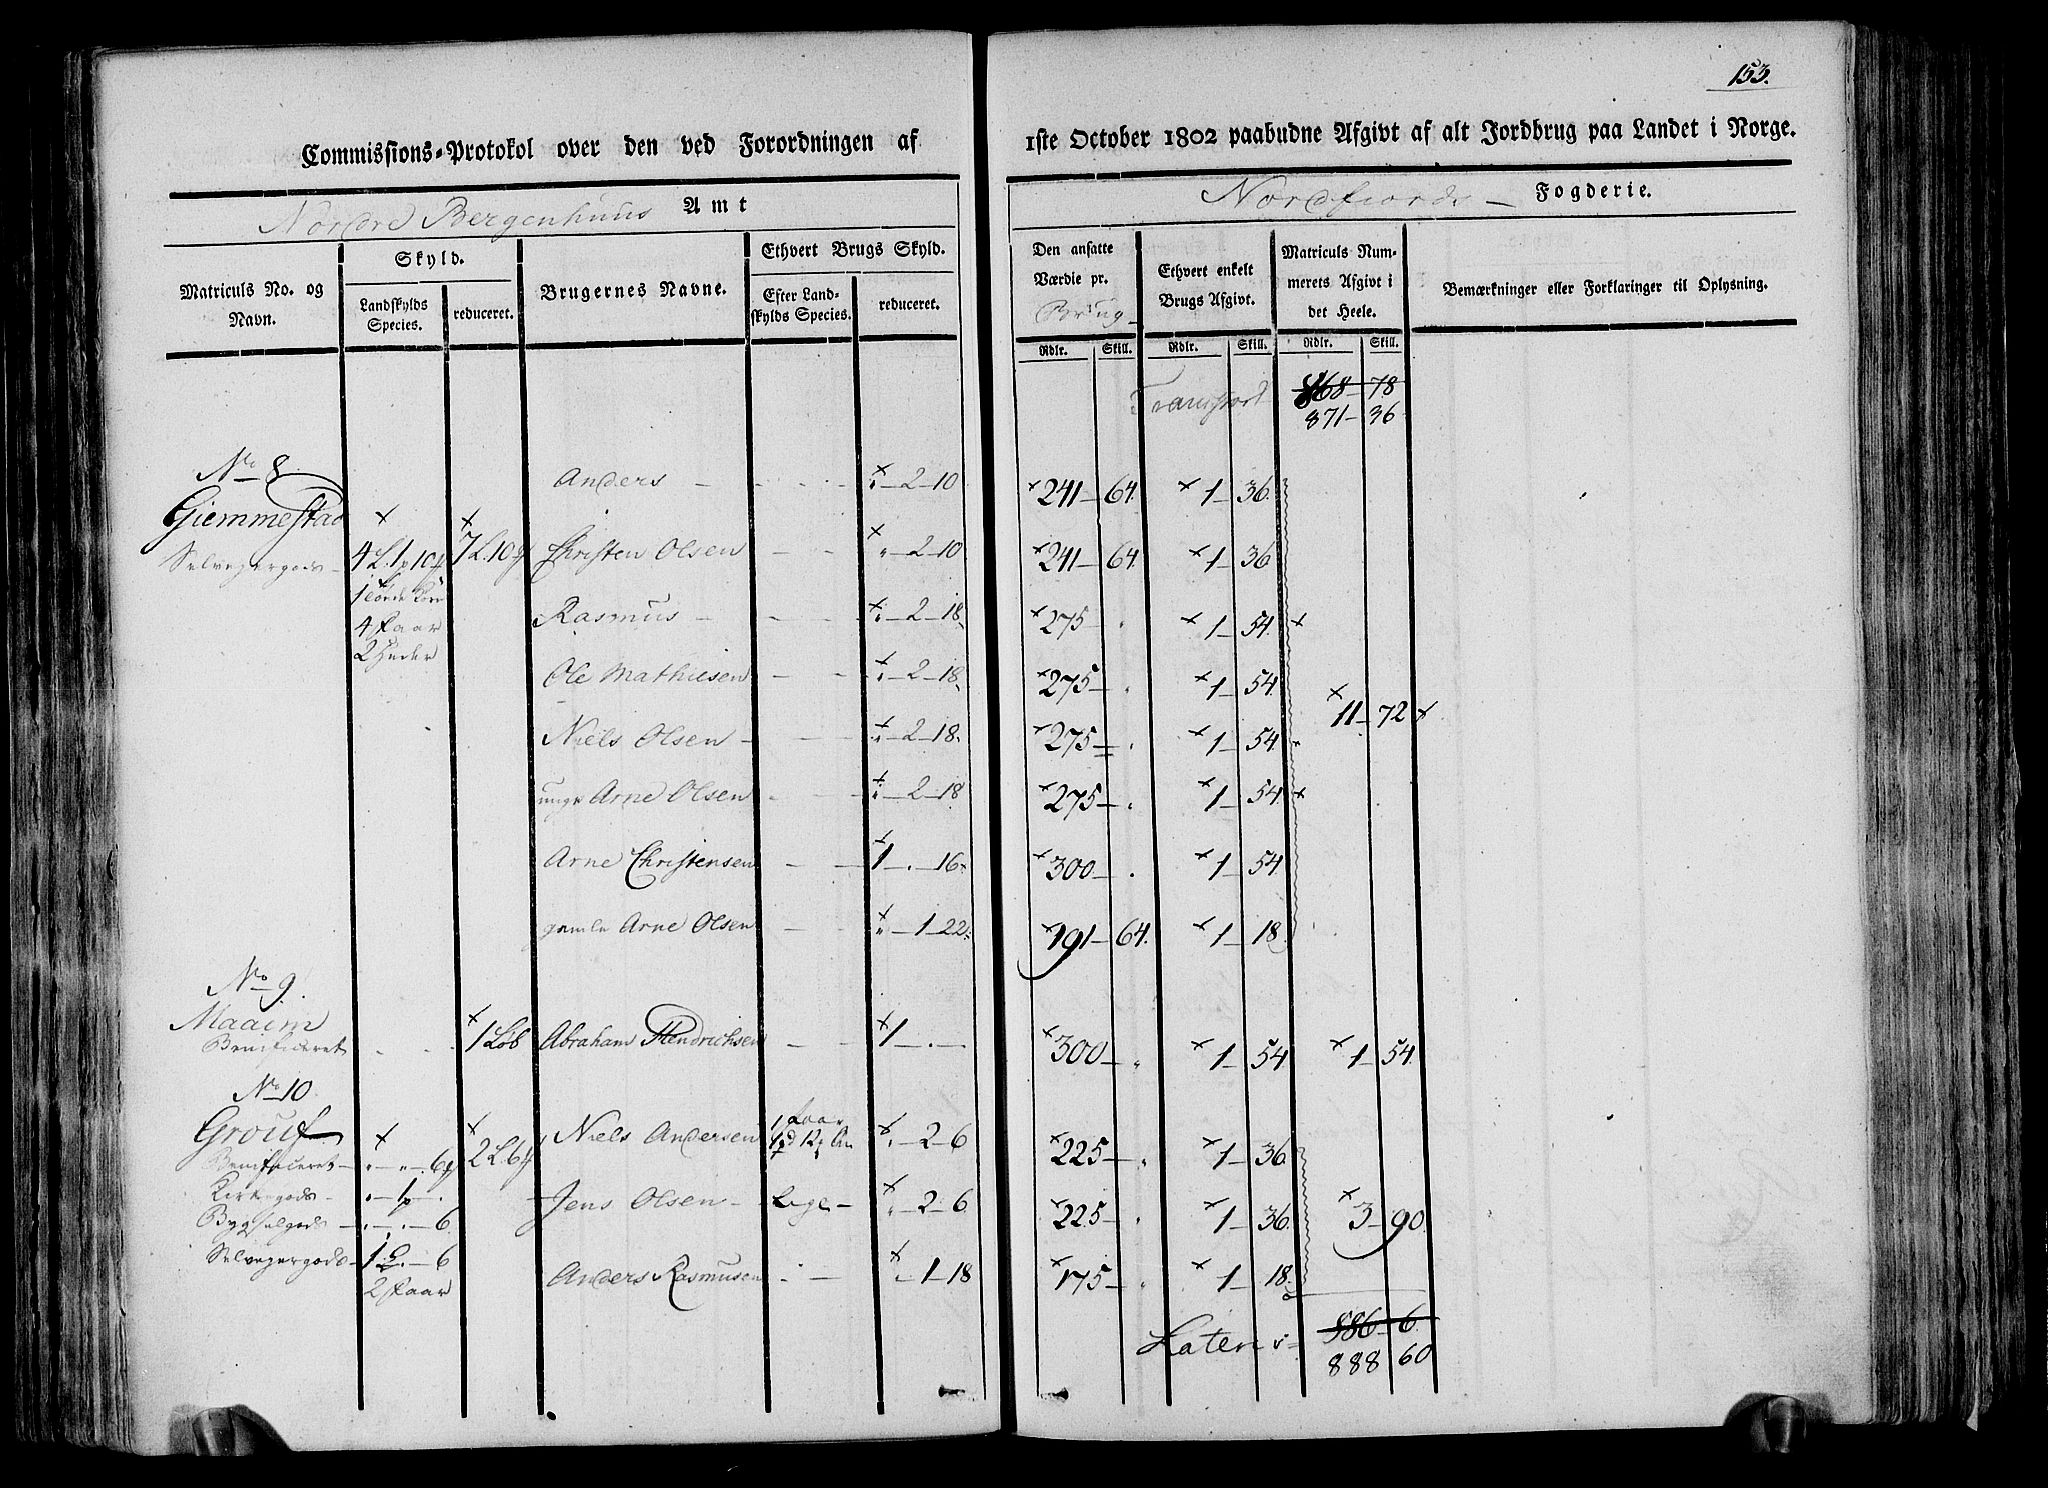 153.
Commissions-Protokol over den ved Forordningen af 1ste October 1802 paabudne Afgivt af alt Jordbrug paa Landet i Norge.
Nordre Bergenhuus Amt
Nordfiords Fogderie.
Matriculs No. og Navn.
Skyld.
Landskylds Species.
reduceret.
Brugernes Navne.
Ethvert Brugs Skyld.
Efter Landskylds Species.
reduceret.
Den ansatte Værdie pr. Brug
Ethvert enkelt Brugs Afgivt.
Matriculs Nummerets Afgivt i det Heele.
Bemærkninger eller Forklaringer til Oplysning.
Rdlr. Skill. Rdlr. Skill. Rdlr. Skill.
Transport 868 – 78
871 – 36
No 8
Giemmestad
Selveyergods
4 L. 1 p 10
1 tønde Korn
4 skaar
2 Huder
7 L. 10
Anders – 2 – 10 241 – 64. 1 – 36.
Christen Olsen – 2 – 10 241 – 64. 1 – 36
Rasmus – 2 – 18. 275 – 1 – 54.
Ole Mathiesen – 2 – 18. 275 – 1 – 54.
11 – 72
Niels Olsen – 2 – 18. 275 – 1 – 54.
unge Arne Olsen – 2 – 18 275 – 1 – 54.
Arne Christensen 1 – . – 16 300 – 1 – 54.
gamle Arne Olsen – 1 – 22. 191 – 64. 1 – 18.
No 9.
Maaem
Beneficeret 1 Løb Abraham Hendrichsen 1 – . – 300 – 1 – 54 1 – 54.
No 10.
Grouf
Beneficeret – 6 2 L. 6 Niels Andersen 1 skaar – 2 – 6 225 – 1 – 36.
Kirkegods – 1 p – .
Jens Olsen – Lige – – 2 – 6. 225 – 1 – 36. 3 – 90.
Bygselgods – . – 6.
Selveyergods – 1 – 6
2 skaar
Anders Rasmusen – 1 – 18 175 – 1 – 18.
Lateris 886 – 6.
888 60